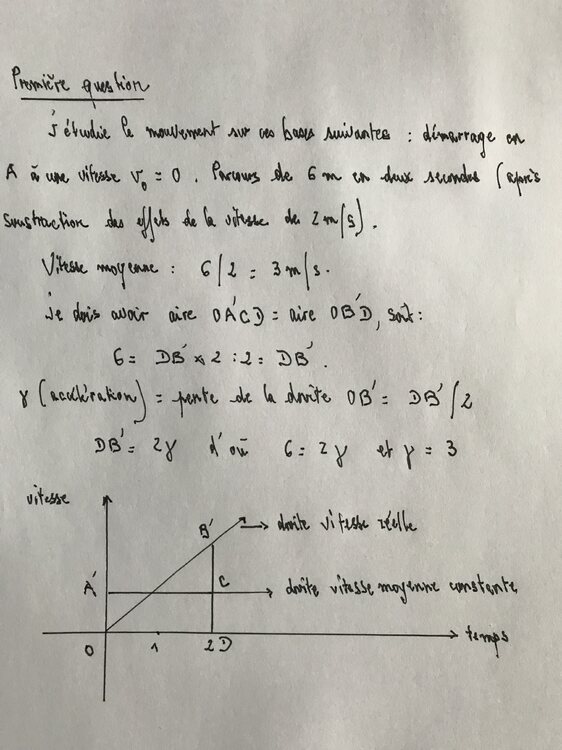 Première question
J'étudie le mouvement sur ces bases suivantes : démarrage en
A à une vitesse v₀ = 0. Parcours de 6 m en deux secondes (après
soustraction des effets de la vitesse de 2 m/s).
Vitesse moyenne : 6/2 = 3 m/s.
Je dois avoir aire OA'CD = aire OB'D, soit :
6 = DB' × 2 : 2 = DB'.
γ (accélération) = pente de la droite OB' = DB'/2
DB' = 2γ d'où 6 = 2γ et γ = 3
vitesse
B' droite vitesse réelle
A' C droite vitesse moyenne constante
O 1 2 D temps